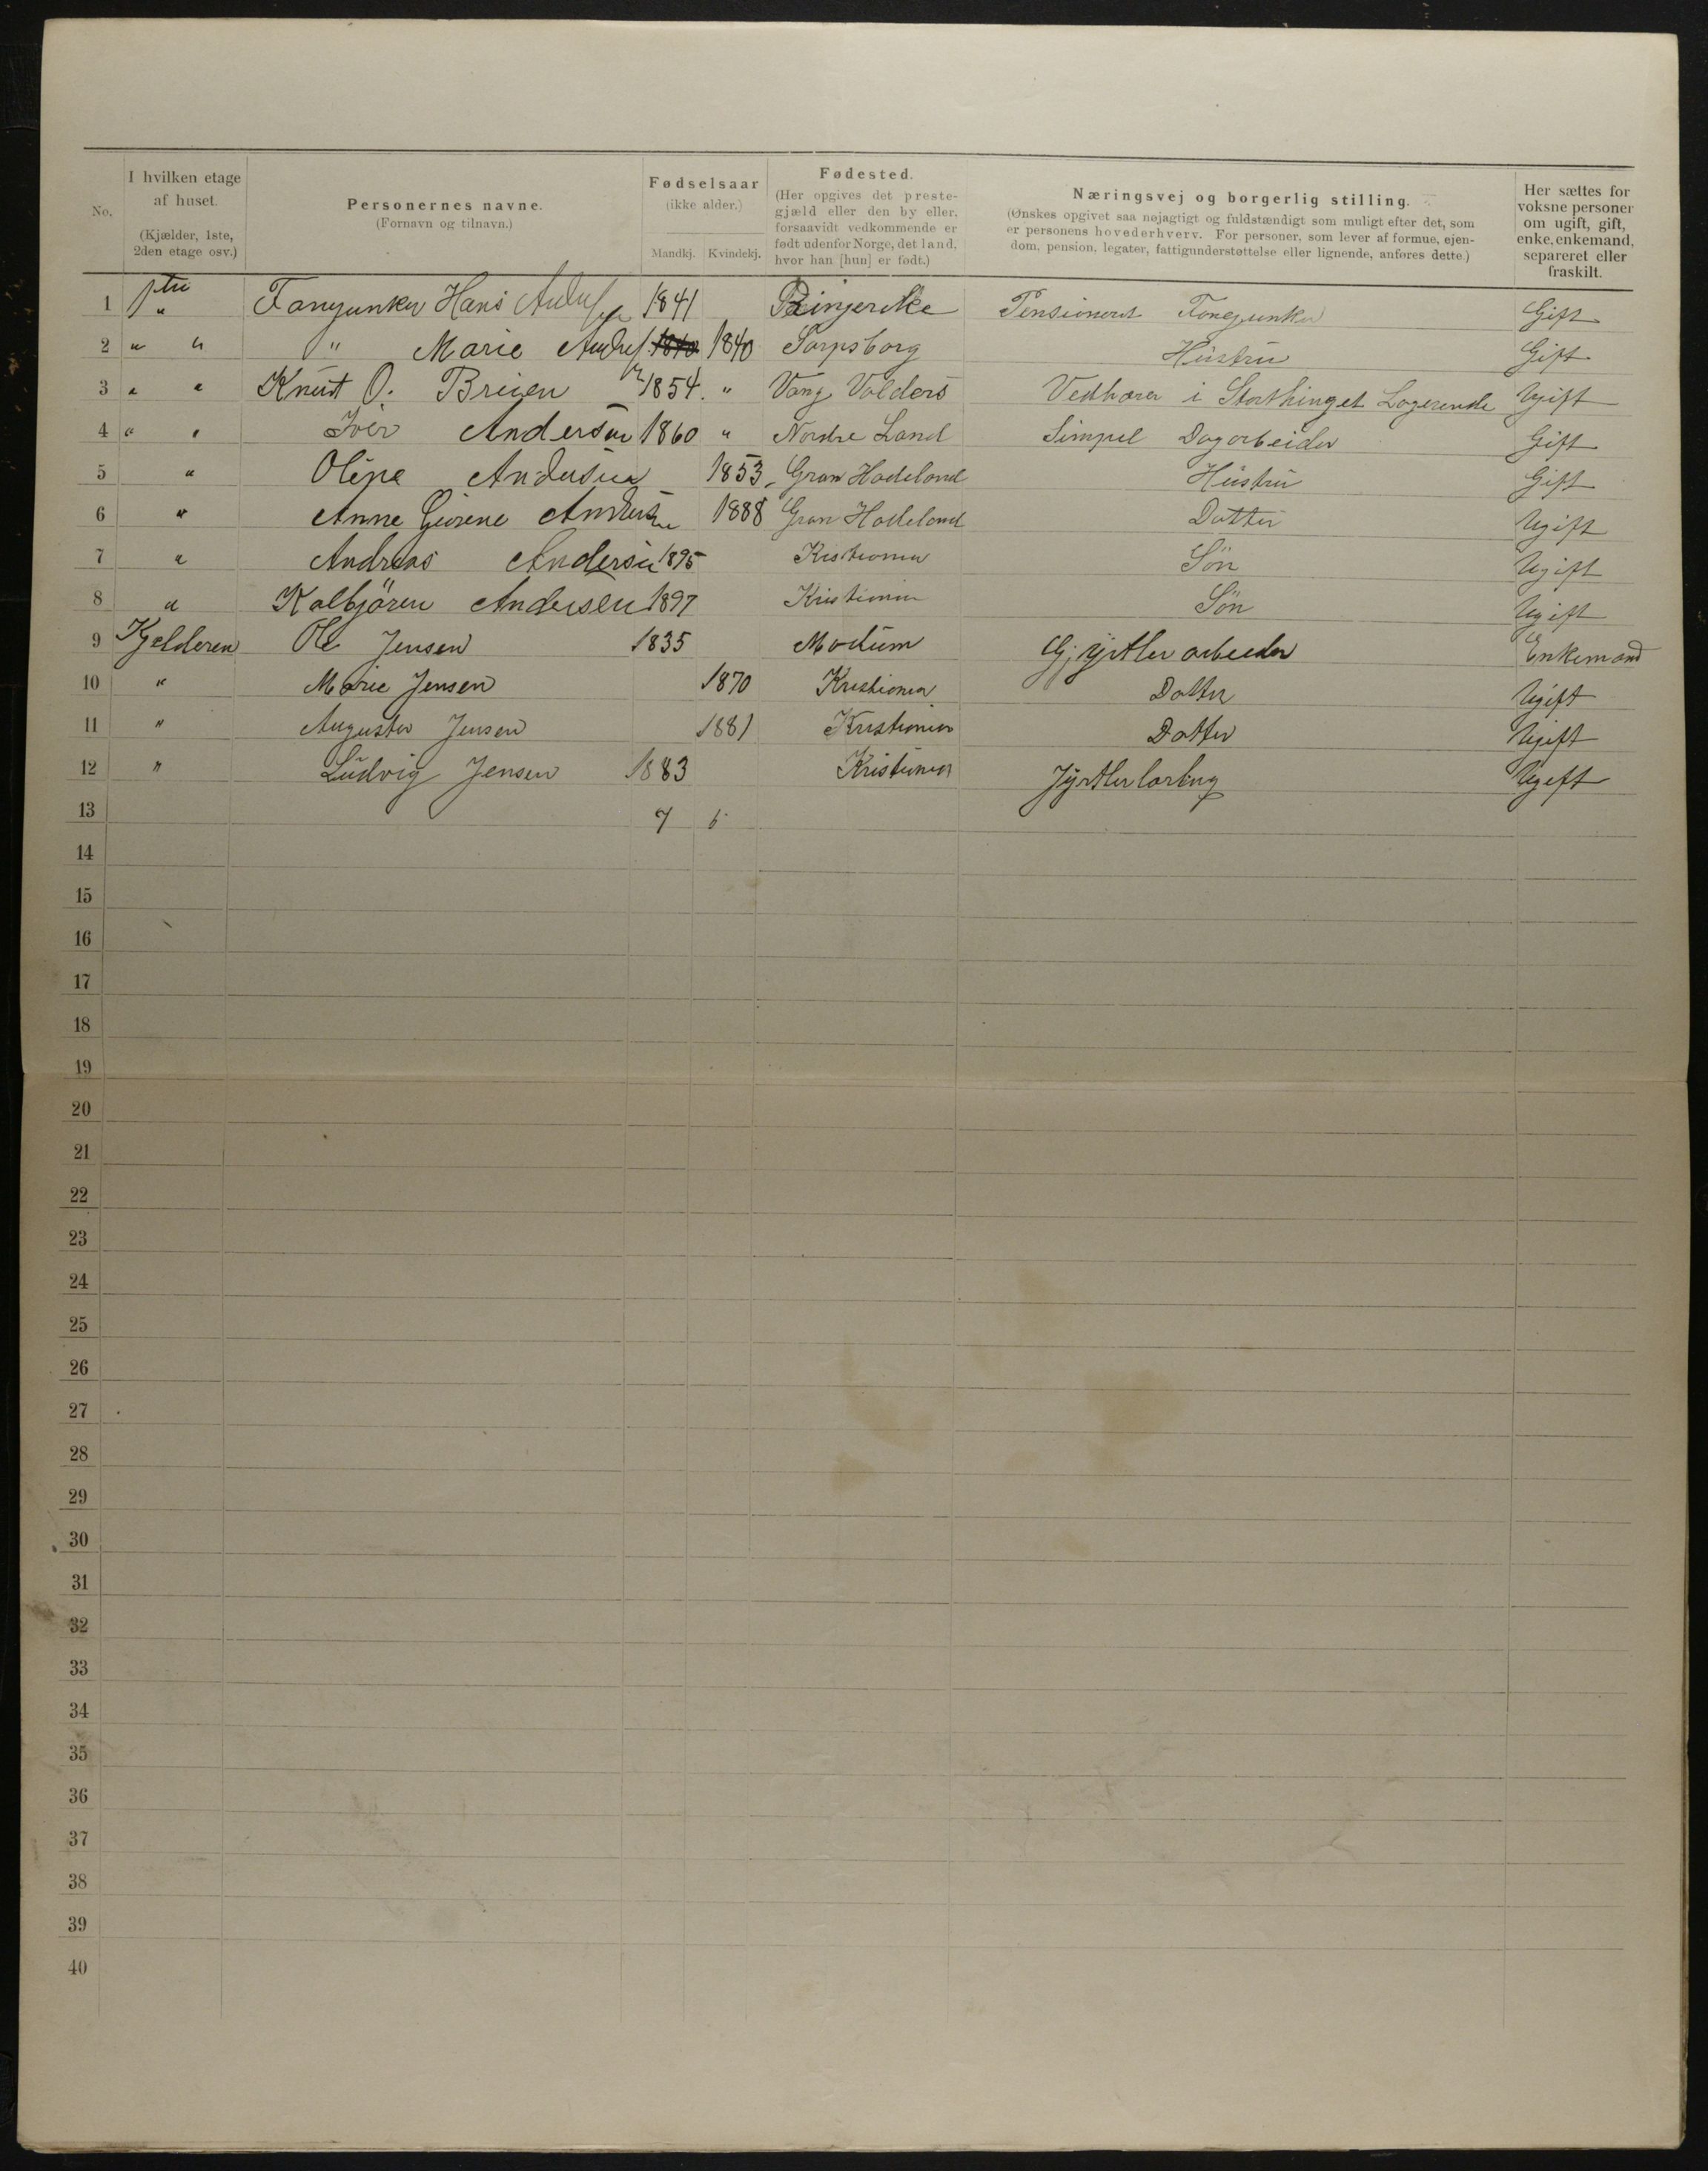 No.
I hvilken etage af huset.
(Kjælder, 1ste, 2den etage osv.)
Personernes navne.
(Fornavn og tilnavn.)
Fødselsaar
(ikke alder.)
Mandkj. Kvindekj.
Fødested.
(Her opgives det preste-
gjæld eller den by eller,
forsaavidt vedkommende er
født udenfor Norge, det land,
hvor han [hun] er født.)
Næringsvej og borgerlig stilling.
(Ønskes opgivet saa nøjagtigt og fuldstændigt som muligt efter det, som
er personens hovederhverv. For personer, som lever af formue, ejen-
dom, pension, legater, fattigunderstøttelse eller lignende, anføres dette.)
Her sættes for
voksne personer
om ugift, gift,
enke, enkemand,
separeret eller
fraskilt.
1 1ste " Fanejunker Hans 1841 Ringerike Pensioneret Fanejunker Gift
2 " " " Marie 1840 1840 Sarpsborg Hustru Gift
3 " " Knut O. 1854. " Vang Valders Vedbærer i Storthinget Logerende Ugift
4 " " Iver Andersen 1860 " Nordre Land Simpel Dagarbeider Gift
5 " Andersen 1853 Gran Hadeland Hustru Gift
6 " Anne Andersen 1888 Gran Hadeland Datter Ugift
7 " Andreas Andersen 1895 Kristiania Søn Ugift
8 " Kolbjören Andersen 1897 Kristiania Sön Ugift
9 Kjelderen Ole Jensen 1835 Modum arbeider Enkemand
10 " Marie Jensen 1870 Kristiania Datter Ugift
11 " Augusta Jensen 1881 Kristiania Datter Ugift
12 " Ludvig Jensen 1883 Kristiania Ugift
13 7 5
14
15
16
17
18
19
20
21
22
23
24
25
26
27
28
29
30
31
32
33
34
35
36
37
38
39
40